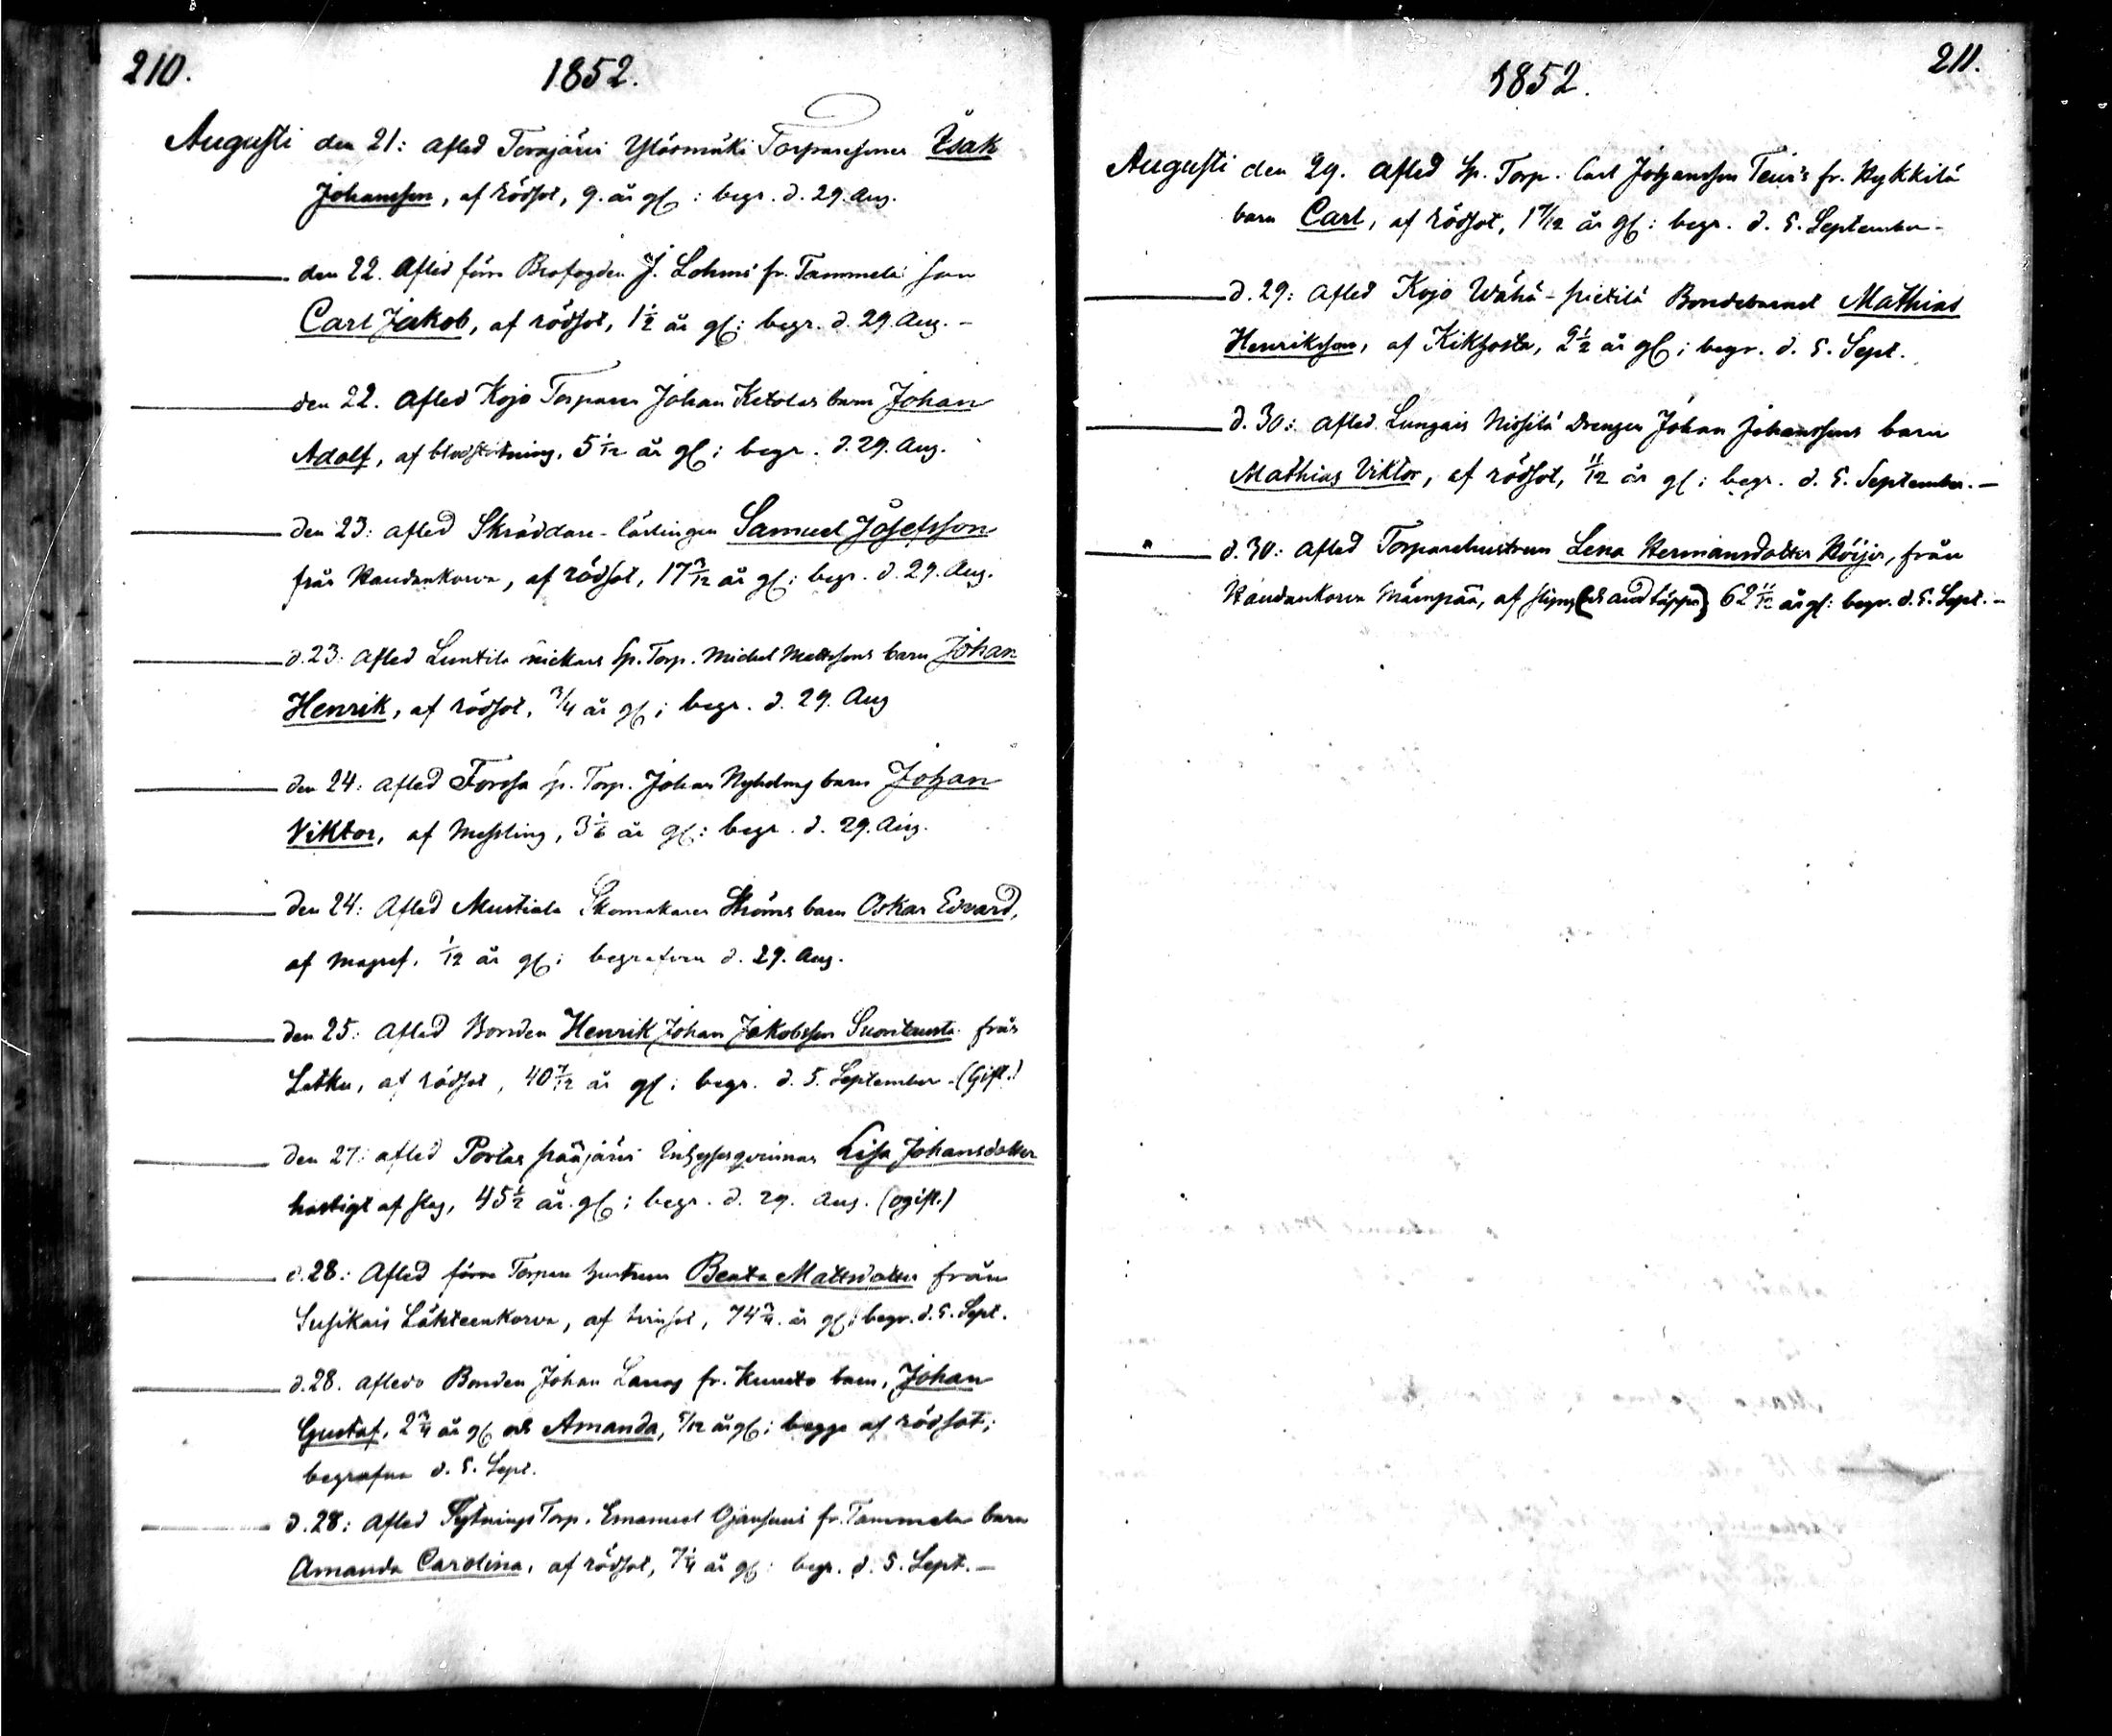 210.
1852.
Augusti den 21: afled Torajärvi Ylösmäki Torparesonen Isak
Johansson, af rödsot, 9. år gl: begr. d. 29. Aug.
den 22. Afled förre Brofogden J. Lohms fr. Tammela son
Carl Jakob, af rödsot, 1 1/2 år gl: begr. d. 29. Aug. -
den 22. afled Kojo Torparen Johan Ketolas barn Johan
Adolf, af blodstörtning, 5 1/12 år gl: begr. d. 29. Aug.
den 23: afled Skräddare-lärlingen Samuel Josefsson
från Kaudankorva, af rödsot, 17 7/12 år gl: begr. d. 29. Aug.
d. 23. Afled Luntila Sp. Torp. Michel Mattssons barn Johan
Henrik, af rödsot, 3/4 år gl; begr. d. 29. Aug
den 24: afled Forssa sp. Torp. Johan Nyholms barn Johan
Viktor, af Messling, 3 1/6 år gl: begr. d. 29. Aug.
den 24: Afled Mustiala Skomakaren Ströms barn Oskar Edvard,
af Magref, 1/12 år gl: begrafven d. 29. Aug.
den 25: Afled Bonden Henrik Johan Jakobsson Suontausta från
Letku, af rödsot, 40 7/12 år gl: begr. d. 5. September - (Gift.)
den 27: afled Portas Pääjärvi Inhysesqvinnan Lisa Johansdotter
hastigt af slag, 45 1/2 år. gl: begr. d. 29. Aug. (ogift.)
d. 28: Afled förre Torpare hustrun Beata Mattsdotter från
Susikais Lähteenkorva, af tvinsot, 74 3/4 år gl: begr. d. 5. Sept.
d. 28. afledo Bonden Johan Lanas fr. Kuusto barn, Johan
Gustaf, 2 3/4 år gl och Amanda, 5/12 år gl: begge af rödsot;
begrafna d. 5. Sept.
d. 28: Afled Sytnings Torp. Emanuel Ojansuus fr. Tammela barn
Amanda Carolina, af rödsot, 7 1/4 år gl: begr. d. 5. Sept. -
211.
1852.
Augusti den 29. Afled Sp. Torp. Carl Johansson Teur's fr. Hykkilä
barn Carl, af rödsot, 1 7/12 år gl: begr. d. 5. September -
d. 29: Afled Kojo Wähä-Pietilä Bondebarnet Mathias
Henriksson, af Kikhosta, 2 1/2 år gl; begr. d. 5. Sept.
d. 30: Afled Lungais Nissilä Drengen Johan Johanssons barn
Mathias Viktor, af rödsot, 11/12 år gl: begr. d. 5. September. -
" d. 30: Afled Torparehustrun Lena Hermansdotter Höijer, från
Kaudankorva Mäenpää, af styng (och andtäppa) 62 11/12 år gl: begr. d. 5. Sept. -